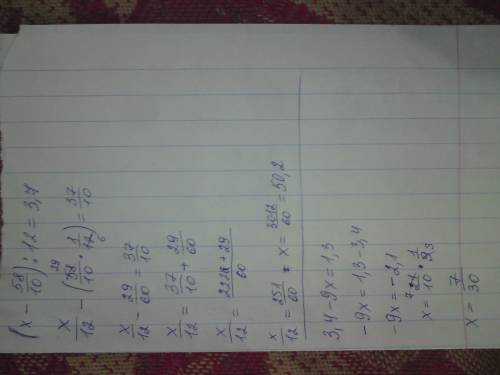 (x - 58/10) : 12 = 3,7
x/12 - (58/10 · 1/12) = 37/10 29 6
x/12 - 29/60 = 37/10
x/12 = 37/10 + 29/60
x/12 = 222 + 29/60
x/12 = 251/60 x = 3012/60 = 50,2
3,4 - 9x = 1,3
-9x = 1,3 - 3,4
-9x = -2,1
x = 21/10 · 1/9 7 3
x = 7/30